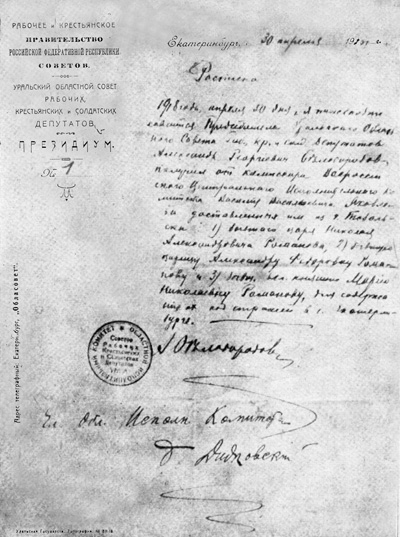 РАБОЧЕЕ и КРЕСТЬЯНСКОЕ
ПРАВИТЕЛЬСТВО
РОССІЙСКОЙ ФЕДЕРАТИВНОЙ РЕСПУБЛИКИ
СОВЕТОВ.
УРАЛЬСКІЙ ОБЛАСТНОЙ СОВЕТ
РАБОЧИХ,
КРЕСТЬЯНСКИХ и СОЛДАТСКИХ
ДЕПУТАТОВ.
ПРЕЗИДИУМ.
№ 1
Екатеринбург, 30 апреля
Расписка
1918 года, апреля 30 дня, я
Председатель Уральского
Совета раб., кр. и солд. Депутатов
Александр Георгиевич Белобородов
получил от комиссара Всеросси
ского Центрального Исполнительного Ко
митета Василия Васильевича Яковле
ва доставленных им из г. Тоболь
ска: 1) бывшего царя Николая
Александровича Романова, 2) бывшую
царицу Александру Федоровну Рома
нову и 3) бывш. вел. княжну Марию
Николаевну Романову, для содержа
ния их под стражей в г. Екатерин
бурге.
А. Белобородов
Чл. Обл. Исполн. Комитета
Б. Дидковский
Адрес телеграфный: Екатеринбург, „Облсовет".